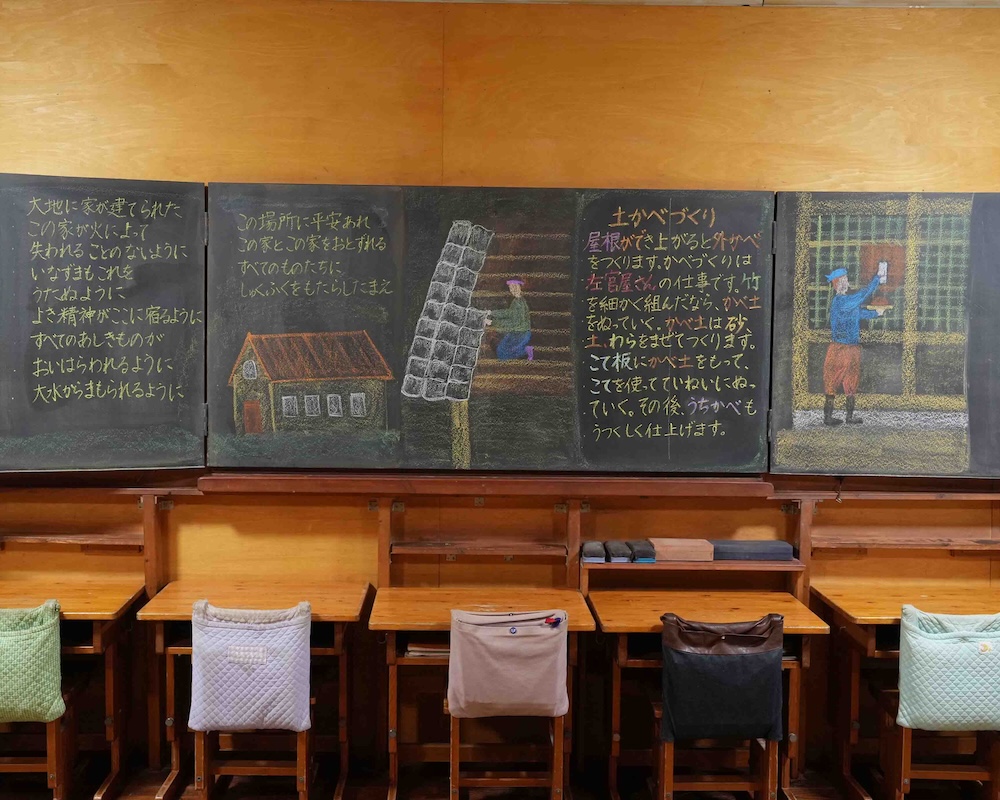 大地に家が建てられた
この家が火に上って
失われることのないように
いなずまもこれを
うたぬように
よき精神がここに宿るように
すべてのあしきものが
おいはらわれるように
大水からまもられるように
この場所に平安あれ
この家とこの家をおとずれる
すべてのものたちに
しゅくふくをもたらしたまえ
土かべづくり
屋根ができ上がると外かべ
をつくります。かべづくりは
左官屋さんの仕事です。竹
を細かく組んだなら、かべ土
をぬっていく。かべ土は砂、
土、わらをまぜてつくります。
こて板にかべ土をもって、
こてを使っていねいにぬっ
ていく。その後、うちかべも
うつくしく仕上げます。